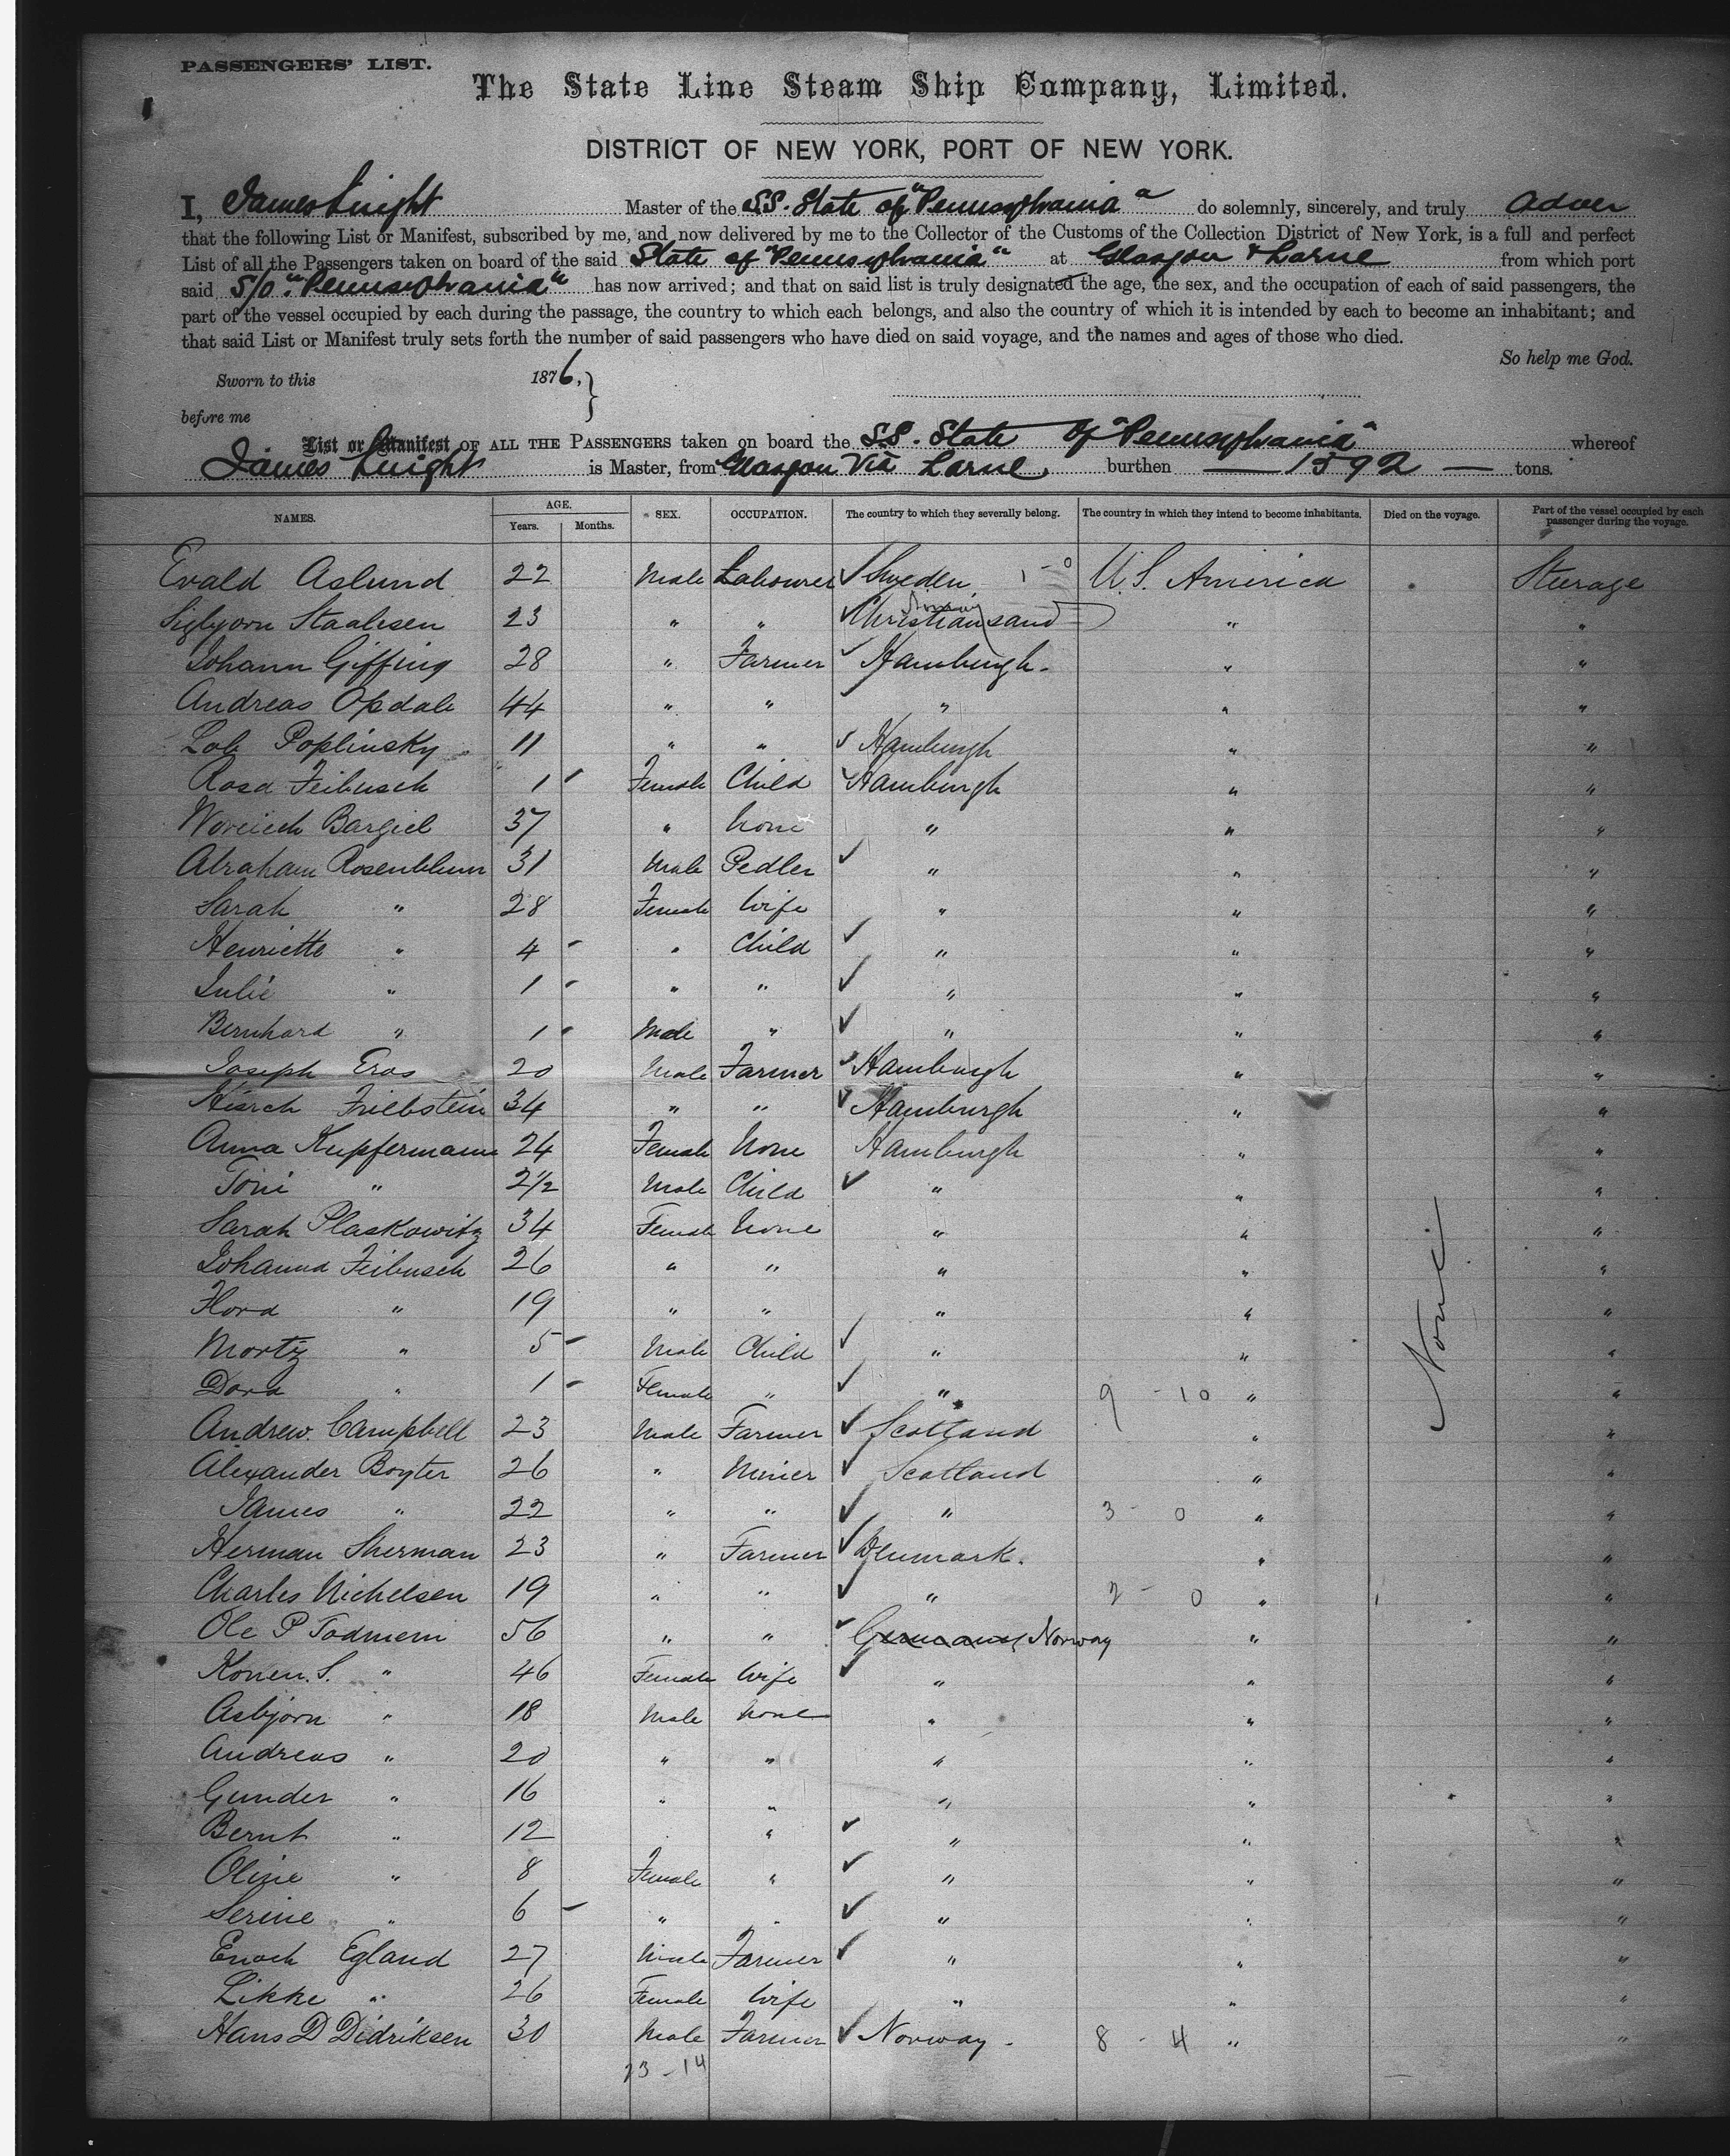 PASSENGERS' LIST.
The State Line Steam Ship Company, Limited.
DISTRICT OF NEW YORK, PORT OF NEW YORK.
I, James Knight Master of the SS. State of "Pennsylvania" do solemnly, sincerely, and truly
that the following List or Manifest, subscribed by me, and now delivered by me to the Collector of the Customs of the Collection District of New York, is a full and perfect
List of all the Passengers taken on board of the said State of "Pennsylvania" at Glasgow & Larne from which port
said S/o "Pennsylvania" has now arrived; and that on said list is truly designated the age, the sex, and the occupation of each of said passengers, the
part of the vessel occupied by each during the passage, the country to which each belongs, and also the country of which it is intended by each to become an inhabitant; and
that said List or Manifest truly sets forth the number of said passengers who have died on said voyage, and the names and ages of those who died.
So help me God.
Sworn to this 1876,
before me
List or Manifest OF ALL THE PASSENGERS taken on board the SS. State of "Pennsylvania" whereof
James Knight is Master, from Glasgow Via Larne, burthen — 1592 — tons.
NAMES. AGE. SEX. OCCUPATION. The country to which they severally belong. The country in which they intend to become inhabitants. Died on the voyage. Part of the vessel occupied by each passenger during the voyage.
Years. Months.
Evald Aslund 22 Male Labourer ✓ Sweden 1 - 0 U.S. America Steerage
Sigbjorn Staalesen 23 " " ✓ Christiansand Norway " "
Johann Giffing 28 " Farmer ✓ Hamburgh. " "
Andreas Opdale 44 " " ✓ " " "
Lob Poplinsky 11 " " ✓ Hamburgh " "
Rosa Feibusch 1 - Female Child ✓ Hamburgh " "
Woreich Bargiel 37 " None " " "
Abraham Rosenblum 31 Male Pedler ✓ " " "
Sarah " 28 Female Wife " " "
Henriette " 4 - " Child ✓ " " "
Julie " 1 - " " ✓ " " "
Bernhard " 1 - Male " ✓ " " "
Joseph Eras 20 Male Farmer ✓ Hamburgh " "
Hirsch Friebstein 34 " " ✓ Hamburgh " "
Anna Kupfermann 24 Female None Hamburgh " "
Toni " 2½ Male Child ✓ " " "
Sarah Plaskowitz 34 Female None " " "
Johanna Feibusch 26 " " " " "
Flora " 19 " " " " "
Mortiz " 5 - Male Child ✓ " " None "
Dora " 1 - Female " ✓ " 9 - 10 " "
Andrew Campbell 23 Male Farmer ✓ Scotland " "
Alexander Boyter 26 " Miner ✓ Scotland " "
James " 22 " " ✓ " 3 - 0 " "
Herman Sherman 23 " Farmer ✓ Denmark. " "
Charles Nichelsen 19 " " ✓ " 2 - 0 " "
Ole P Todmem 56 " " ✓ Germany Norway " "
Konen S. " 46 Female Wife ✓ " " "
Asbjorn " 18 Male None " " "
Andreas " 20 " " " " "
Gunder " 16 " " " " "
Bernt " 12 " ✓ " " "
Oline " 8 Female " ✓ " " "
Serine " 6 - " " ✓ " " "
Enoch Egland 27 Male Farmer ✓ " " "
Likke " 26 Female Wife " " "
Hans D Didriksen 30 Male Farmer ✓ Norway - 8 - 4 " "
23 - 14